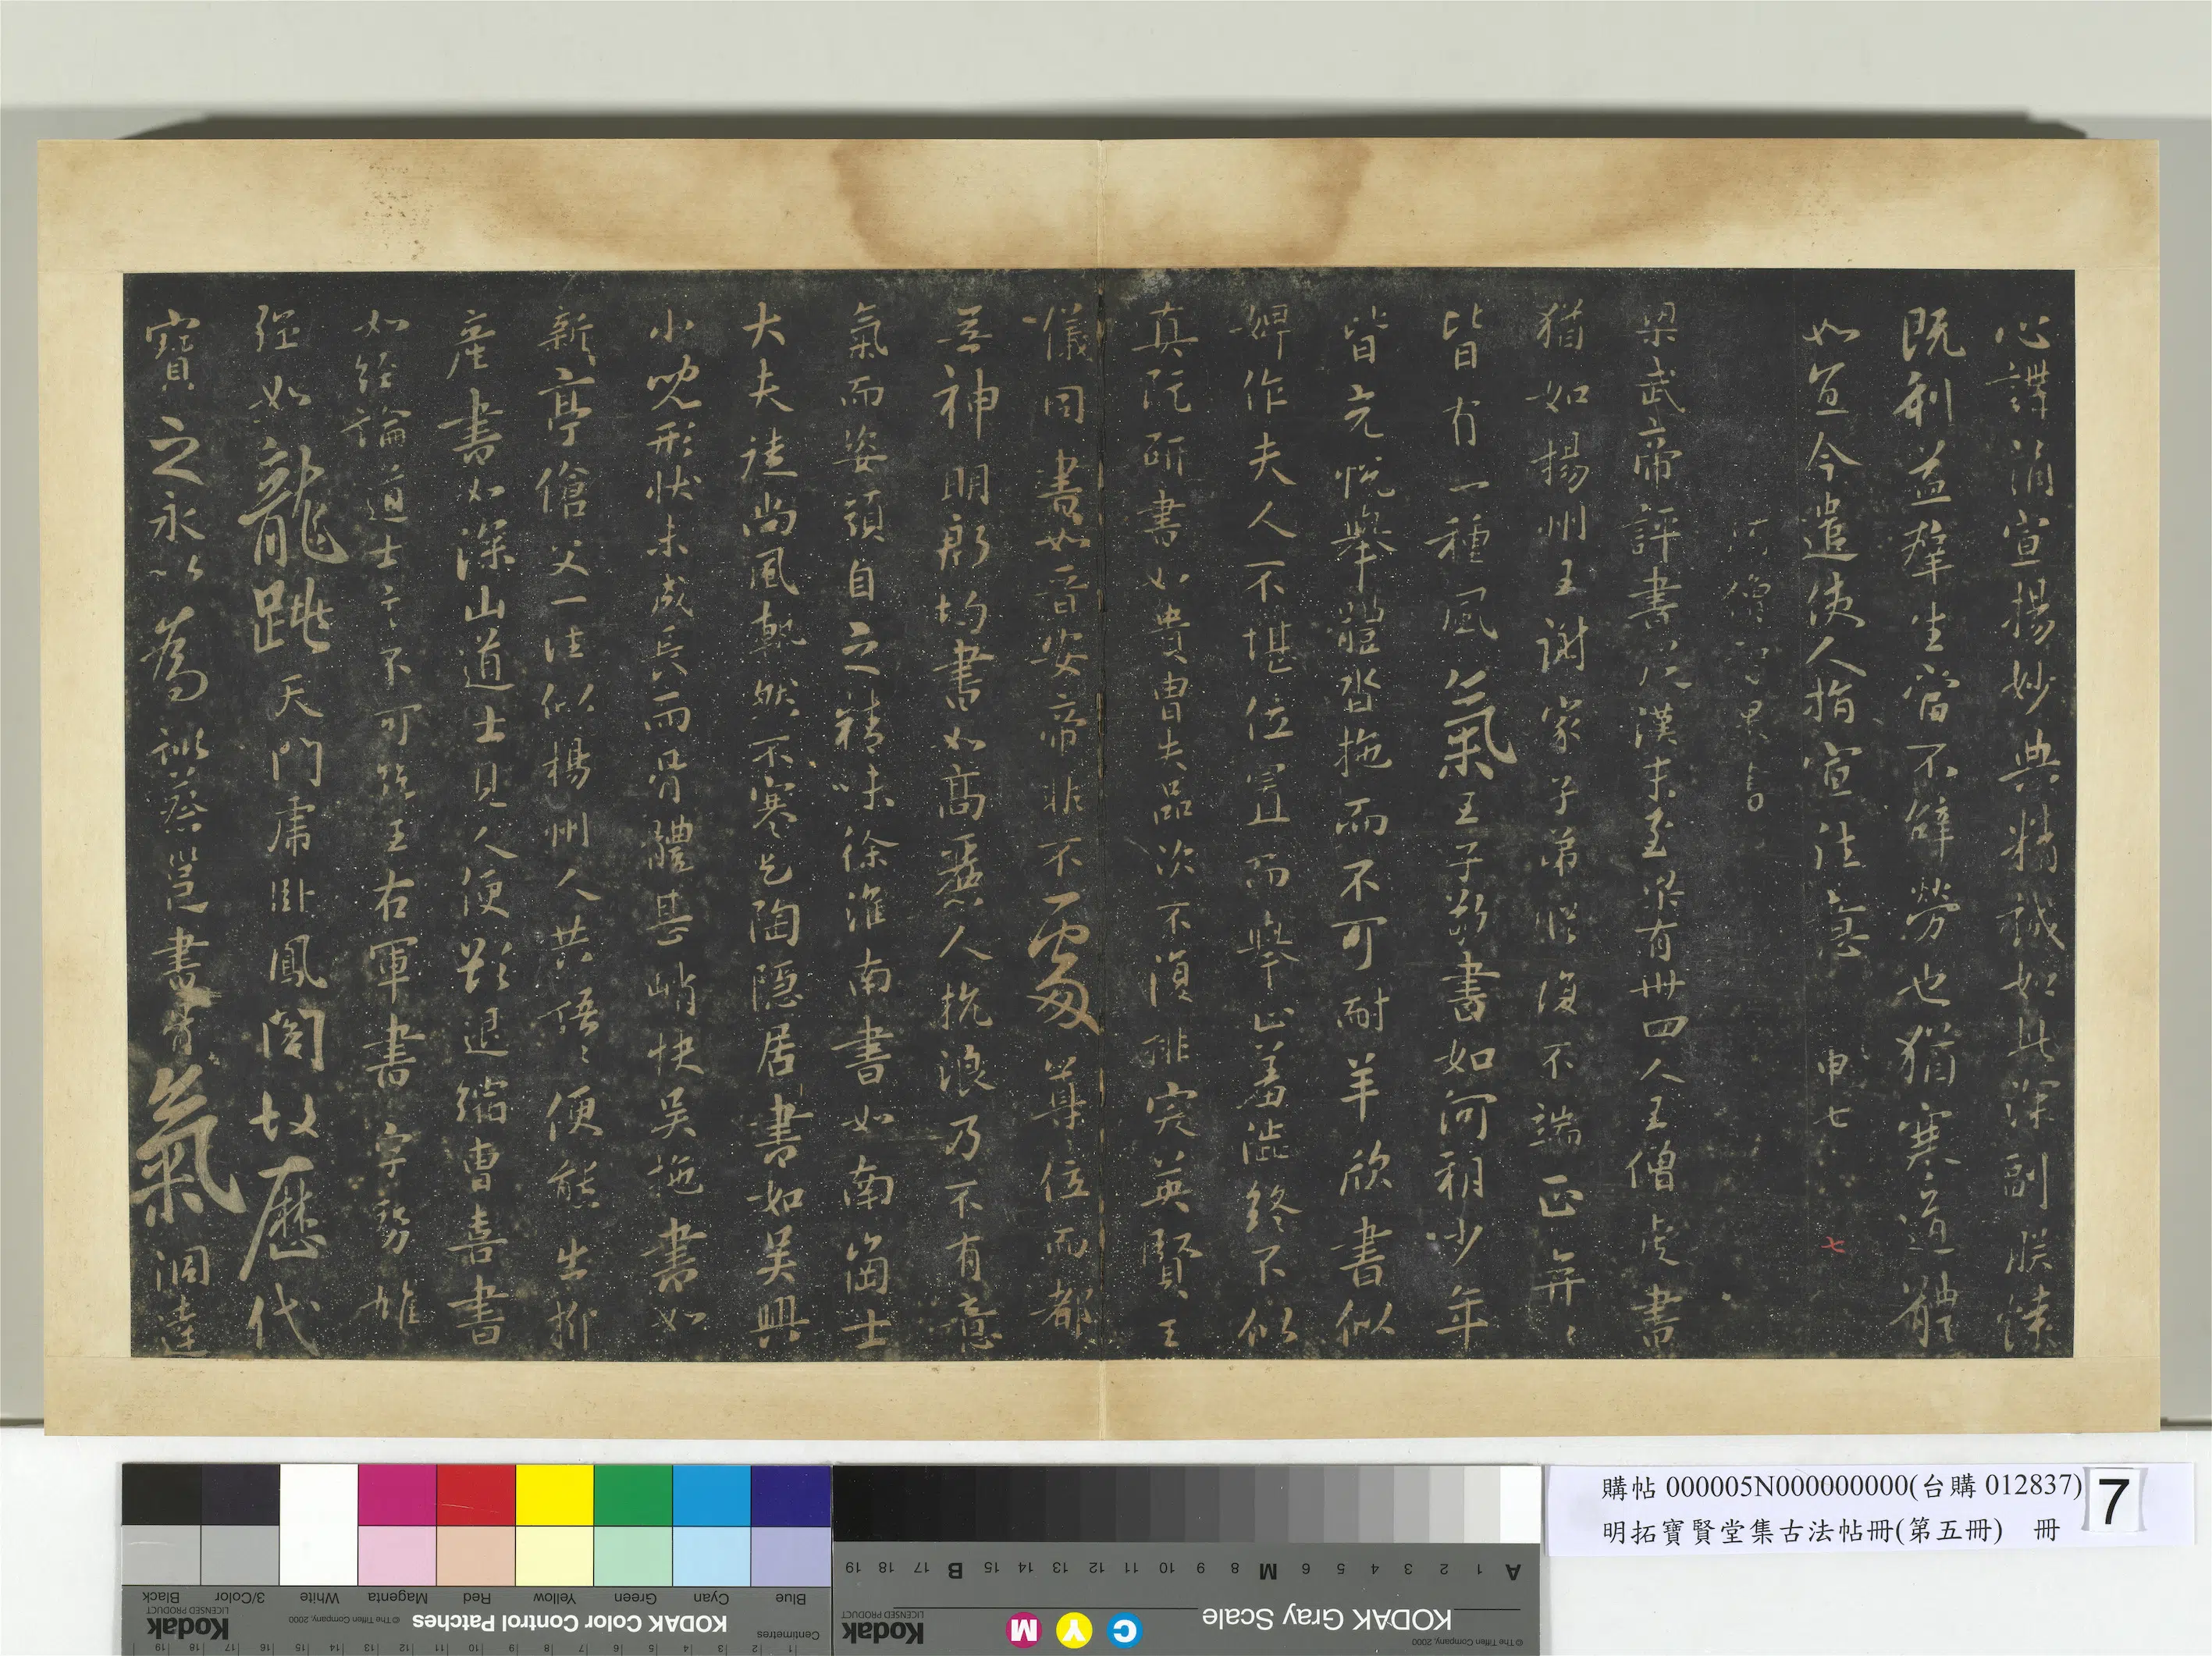 心講誦宣揚妙典精誠如此深副朕懷
既利益群生當不辭勞也猶寒道體
如宜今遣使人指宣往意 申七
七
阿僧
梁武帝評書從漢末至梁有卅四人王僧虔書
猶如揚州王謝家子弟縱復不端正奕〻
皆有一種風氣王子敬書如河朔少年
皆充悅舉體沓拖而不可耐羊欣書似
婢作夫人不堪位置而舉止羞澀終不似
真阮研書如貴胄失品次不復排突英賢王
儀同書如晉安帝非不處尊位而都
無神明郗愔書如高麗人抗浪乃不有意
氣而姿顏自之精味徐淮南書如南崗士
大夫徒尚風軌然不寒乞陶隱居書如吳興
小兒形狀未成長而骨體甚峭快吳施書如
新亭傖父一往似楊州人共語〻便態出柳
產書如深山道士見人便欲退縮曹喜書
如經論道士言不可絕王右軍書字勢雄
強如龍跳天門虎臥鳳閣故歷代
寶之永以為訓蔡邕書骨氣洞達
購帖 000005N000000000(台購 012837)
明拓寶賢堂集古法帖冊(第五冊) 冊
7
KODAK Color Control Patches
© The Tiffen Company, 2000
Kodak
LICENSED PRODUCT
Blue Cyan Green Yellow Red Magenta White 3/Color Black
Centimetres
KODAK Gray Scale
© The Tiffen Company, 2000
C Y M
Kodak
LICENSED PRODUCT
A 1 2 3 4 5 6 M 8 9 10 11 12 13 14 15 B 17 18 19